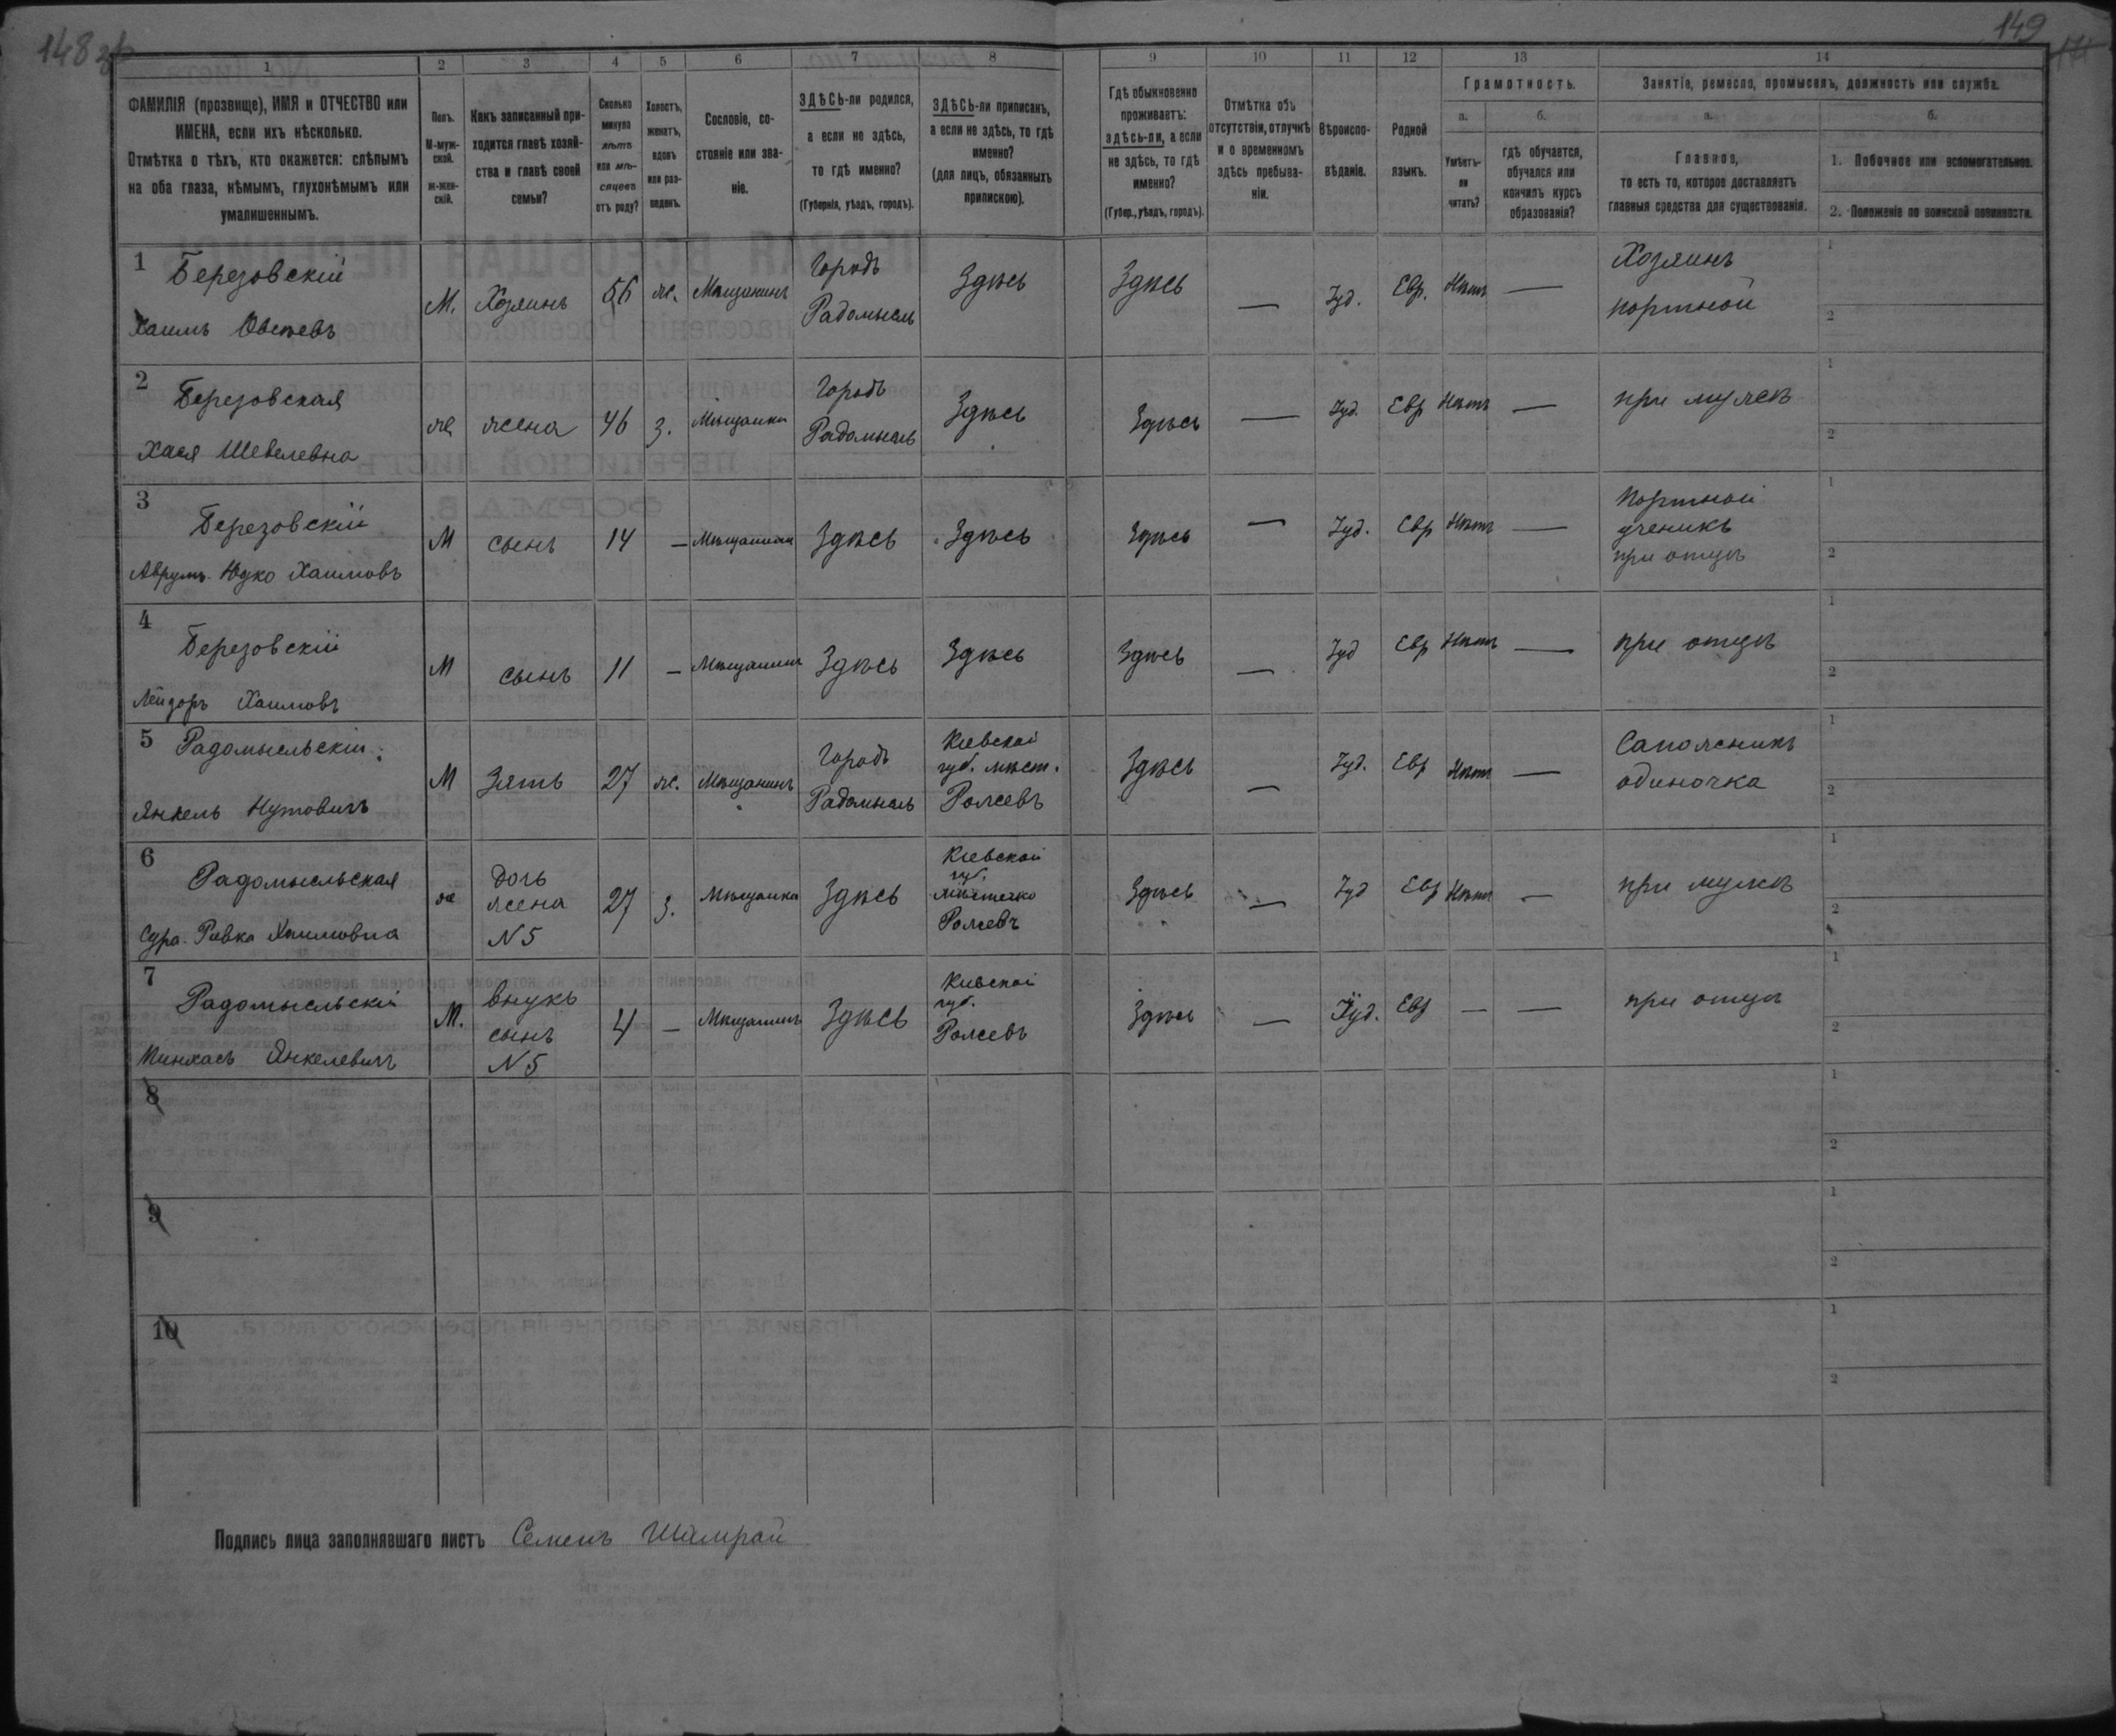 148 об
149
1 2 3 4 5 6 7 8 9 10 11 12 13 14
ФАМИЛІЯ (прозвище), ИМЯ и ОТЧЕСТВО или
ИМЕНА, если ихъ нѣсколько.
Отмѣтка о тѣхъ, кто окажется: слѣпымъ
на оба глаза, нѣмымъ, глухонѣмымъ или
умалишеннымъ.
Полъ.
М-муж-
ской.
ж-жен-
скій.
Какъ записанный при-
ходится главѣ хозяй-
ства и главѣ своей
семьи?
Сколько
минуло
лѣтъ
или мѣ-
сяцевъ
отъ роду?
Холостъ,
женатъ,
вдовъ
или раз-
веденъ.
Сословіе, со-
стояніе или зва-
ніе.
ЗДѢСЬ-ли родился,
а если не здѣсь,
то гдѣ именно?
(Губернія, уѣздъ, городъ).
ЗДѢСЬ-ли приписанъ,
а если не здѣсь, то гдѣ
именно?
(для лицъ, обязанныхъ
припискою).
Гдѣ обыкновенно
проживаетъ:
здѣсь-ли, а если
не здѣсь, то гдѣ
именно?
(Губер., уѣздъ, городъ).
Отмѣтка объ
отсутствіи, отлучкѣ
и о временномъ
здѣсь пребыва-
ніи.
Вѣроиспо-
вѣданіе.
Родной
языкъ.
Грамотность.
а.
Умѣетъ-
ли
читать?
б.
гдѣ обучается,
обучался или
кончилъ курсъ
образованія?
Занятіе, ремесло, промыселъ, должность или служба.
а.
Главное,
то есть то, которое доставляетъ
главныя средства для существованія.
б.
1. Побочное или вспомогательное.
2. Положеніе по воинской повинности.
1 Березовскій
Хаимъ Овсѣевъ
М. Хозяинъ 56 ж. Мѣщанинъ
Городъ
Радомысль
Здѣсь Здѣсь — Іуд. Евр. Нѣтъ —
Хозяинъ
портной
1
2
2 Березовская
Хася Шевелевна
же жена 46 з. Мѣщанка
Городъ
Радомысль
Здѣсь Здѣсь — Іуд. Евр Нѣтъ — при мужѣ
1
2
3 Березовскій
Аврумъ-Юдко Хаимовъ
М сынъ 14 — Мѣщанинъ Здѣсь Здѣсь Здѣсь — Іуд. Евр Нѣтъ —
Портной
ученикъ
при отцѣ
1
2
4 Березовскій
Лейзоръ Хаимовъ
М сынъ 11 — Мѣщанинъ Здѣсь Здѣсь Здѣсь — Іуд Евр Нѣтъ — при отцѣ
1
2
5 Радомысльскій
Янкель Нутовичъ
М Зять 27 ж. Мѣщанинъ
Городъ
Радомысль
Кіевской
губ. мѣст.
Рожевъ
Здѣсь — Іуд. Евр Нѣтъ —
Сапожникъ
одиночка
1
2
6 Радомысльская
Сура-Ривка Хаимовна
же
дочь
жена
N 5
27 з. Мѣщанка Здѣсь
Кіевской
губ.
мѣстечко
Рожевъ
Здѣсь — Іуд Евр Нѣтъ — при мужѣ
1
2
7 Радомысльскій
Пинхасъ Янкелевичъ
М.
внукъ
сынъ
N 5
4 — Мѣщанинъ Здѣсь
Кіевской
губ.
Рожевъ
Здѣсь — Іуд. Евр — — при отцѣ
1
2
8
1
2
9
1
2
10
1
2
Подпись лица заполнявшаго листъ Семенъ Шамрай